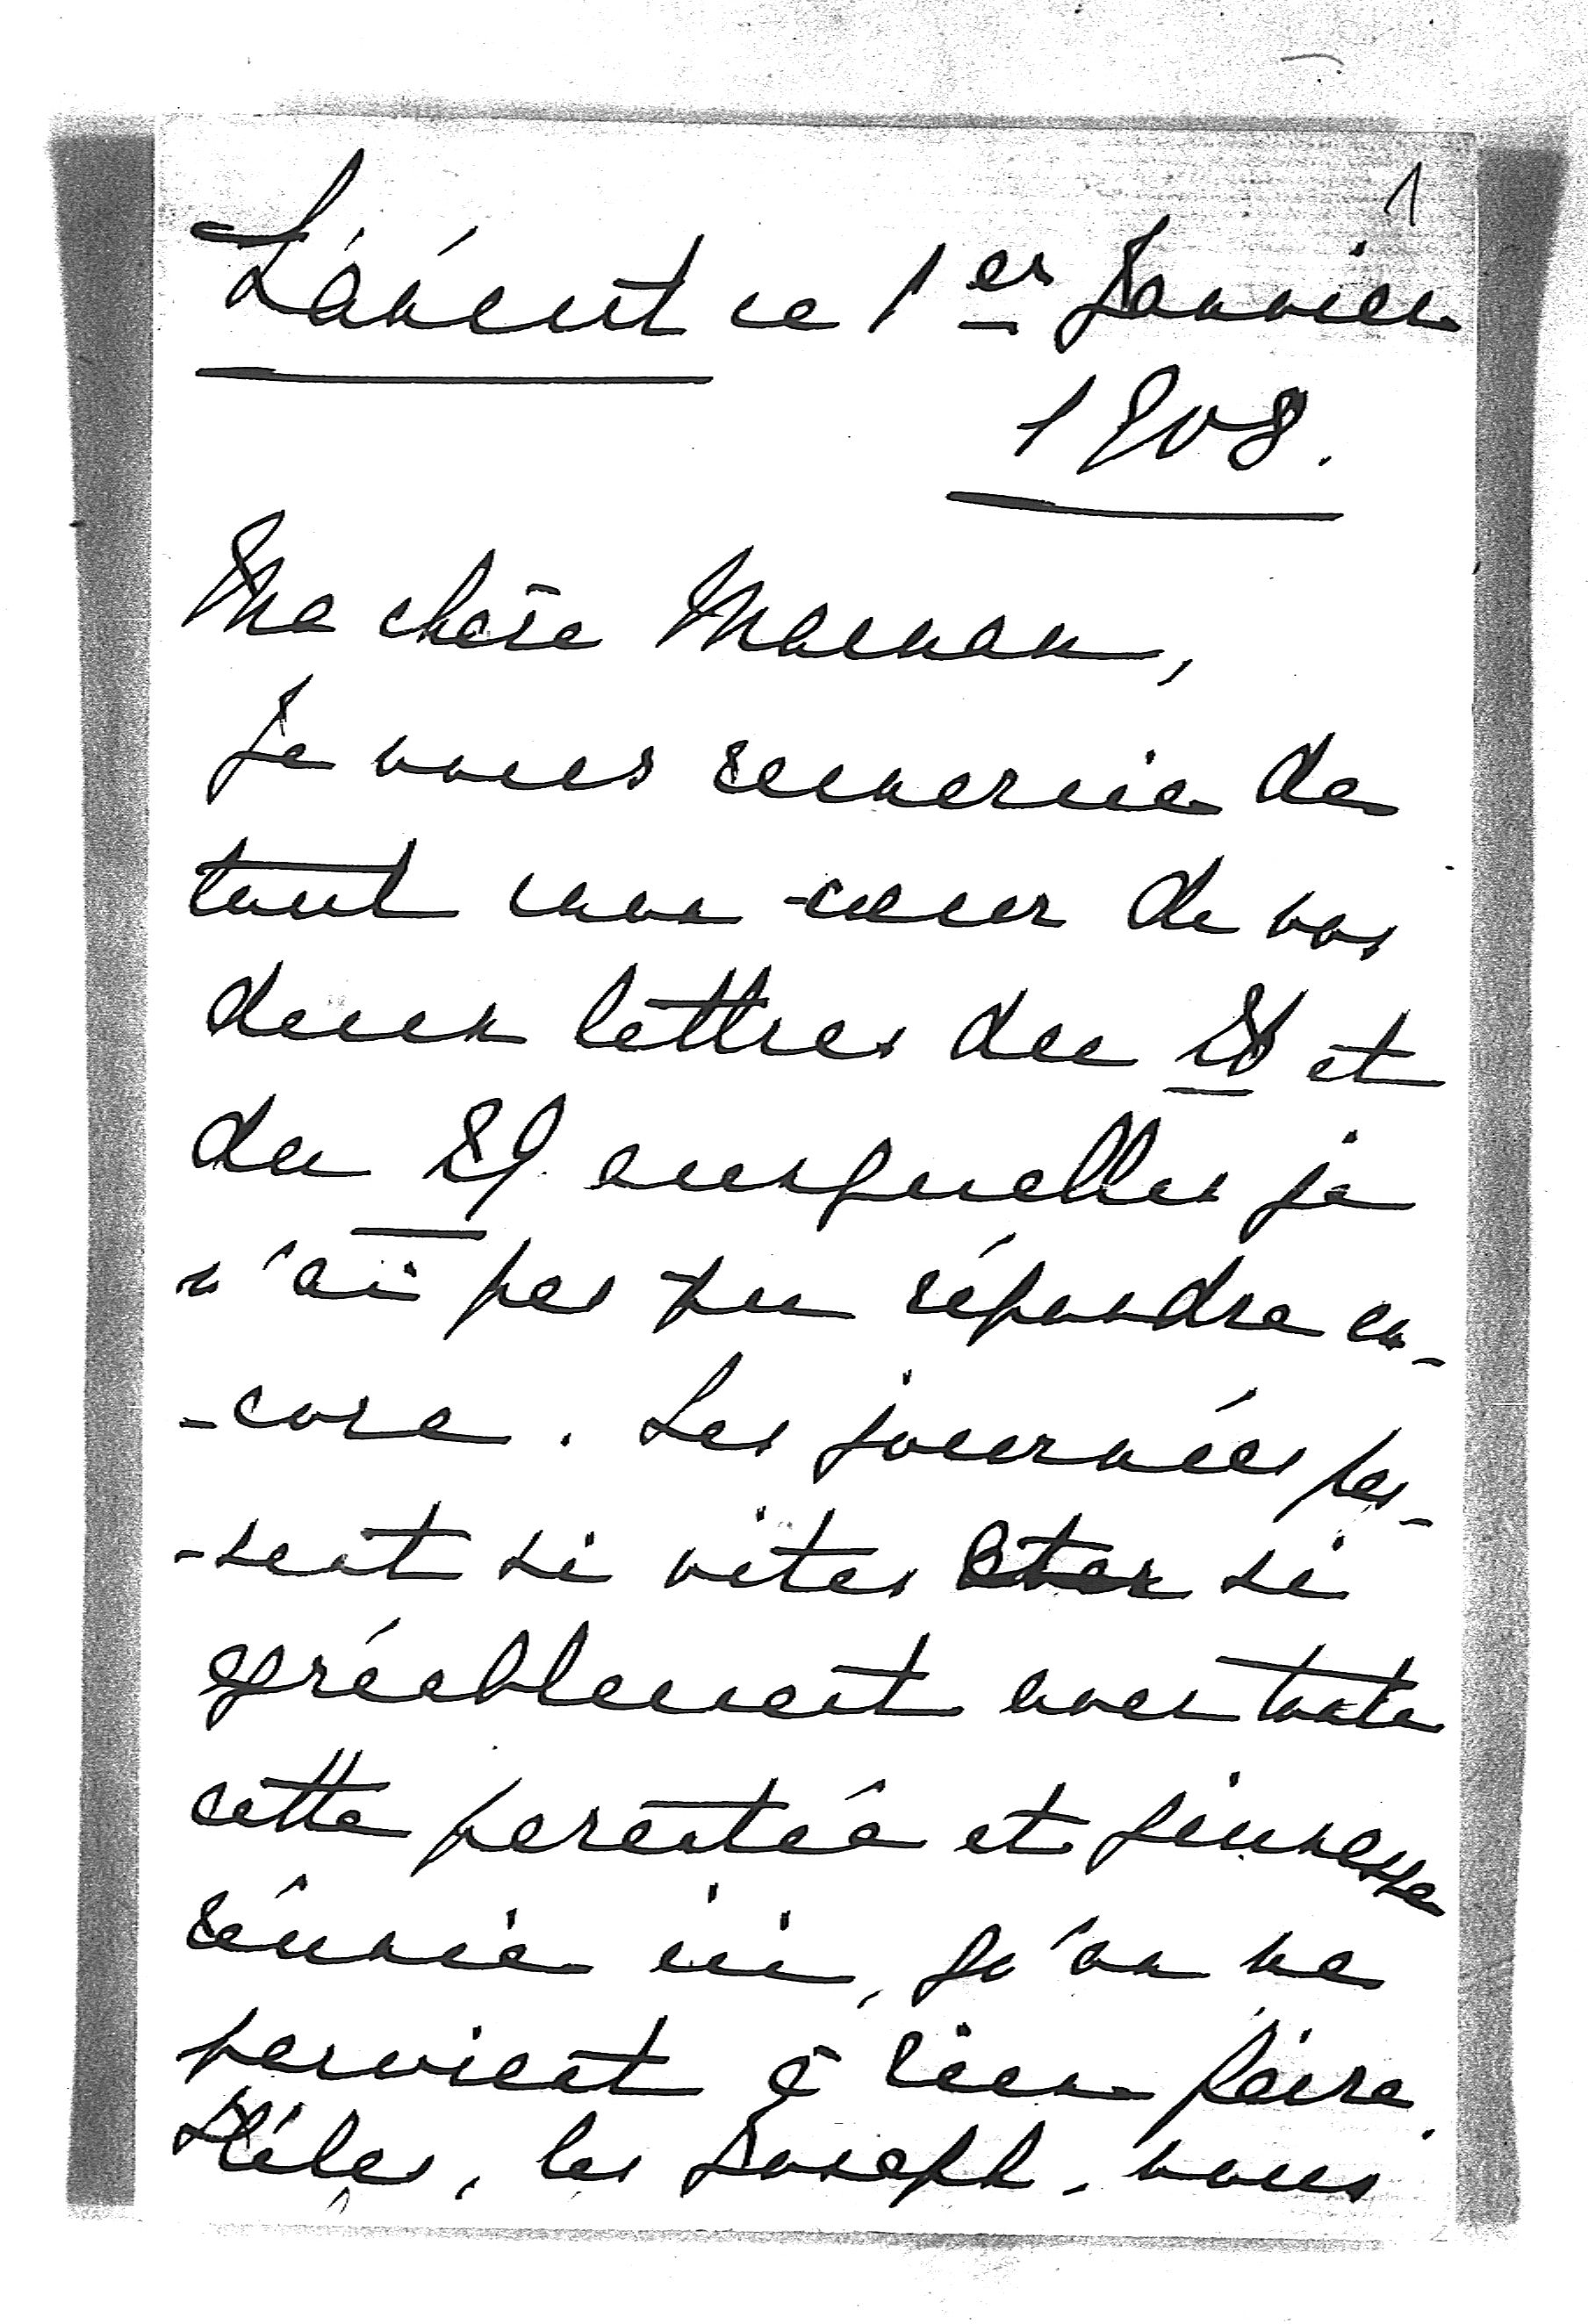 1
ce 1er Janvier
1908.
Ma chère Maman,
Je vous remercie de
tout mon cœur de vos
deux lettres du 28 et
du 29 auxquelles je
n'ai pas pu répondre en-
-core. Les journées pas-
-sent si vites et si
agréablement avec toute
cette parenteé et jeunesse
réunie ici, qu'on ne
parvient à rien faire.
Hélas, les Joseph. nous